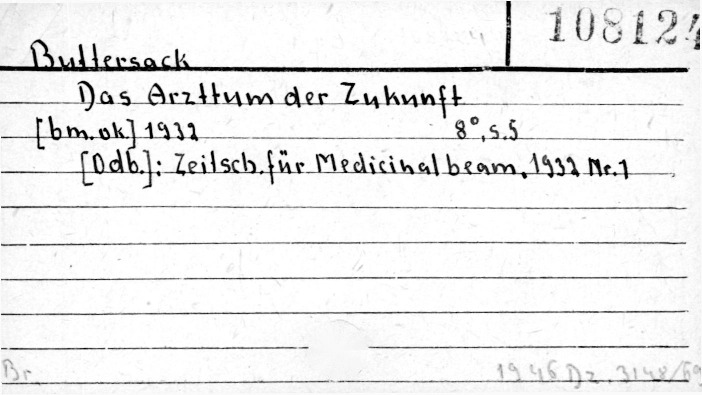 108124
Buttersack
Das Arzttum der Zukunft
[bm. ok] 1932 8°, s. 5
[Odb.]: Zeitsch. für Medicinalbeam, 1932 Nr. 1
Br. 1946 Dz. 3148/69